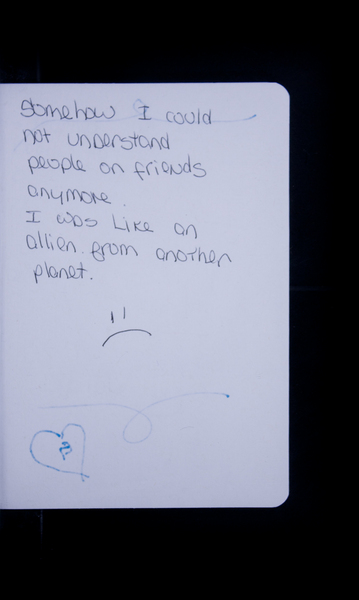 Somehow I could
not understand
people or friends
anymore.
I was like an
allien from another
planet.